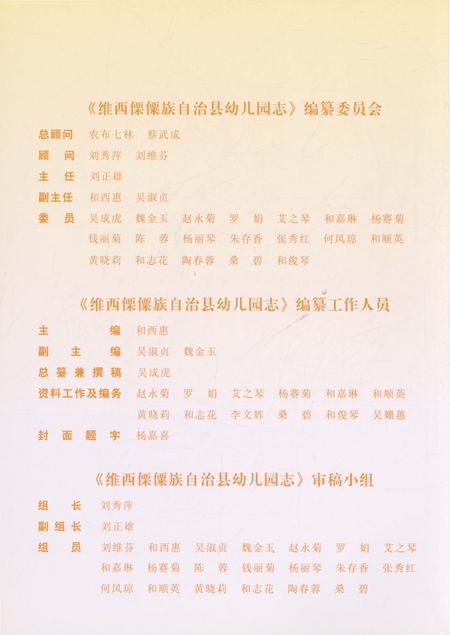 《维西傈僳族自治县幼儿园志》编纂委员会
总顾问 农布七林 蔡武成
顾问 刘秀萍 刘维芬
主任 刘正雄
副主任 和西惠 吴淑贞
委员 吴成虎 魏金玉 赵永菊 罗娟 艾之琴 和嘉琳 杨赛菊
钱丽菊 陈蓉 杨丽琴 朱存香 张秀红 何凤琼 和顺英
黄晓莉 和志花 陶春蓉 桑碧 和俊琴
《维西傈僳族自治县幼儿园志》编纂工作人员
主编 和西惠
副主编 吴淑贞 魏金玉
总纂兼撰稿 吴成虎
资料工作及编务 赵永菊 罗娟 艾之琴 杨赛菊 和嘉琳 和顺英
黄晓莉 和志花 李文辉 桑碧 和俊琴 吴姗蕙
封面题字 杨嘉喜
《维西傈僳族自治县幼儿园志》审稿小组
组长 刘秀萍
副组长 刘正雄
组员 刘维芬 和西惠 吴淑贞 魏金玉 赵永菊 罗娟 艾之琴
和嘉琳 杨赛菊 陈蓉 钱丽菊 杨丽琴 朱存香 张秀红
何凤琼 和顺英 黄晓莉 和志花 陶春蓉 桑碧